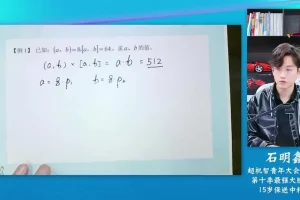 【例1】已知：(a，b)=8，[a，b]=64，求a，b的值。
(a, b) × [a.b] = a·b = 512
a = 8·p₁ b = 8·p₂
石明鑫
超机智青年大会
第十季最强大脑
15岁保送中科